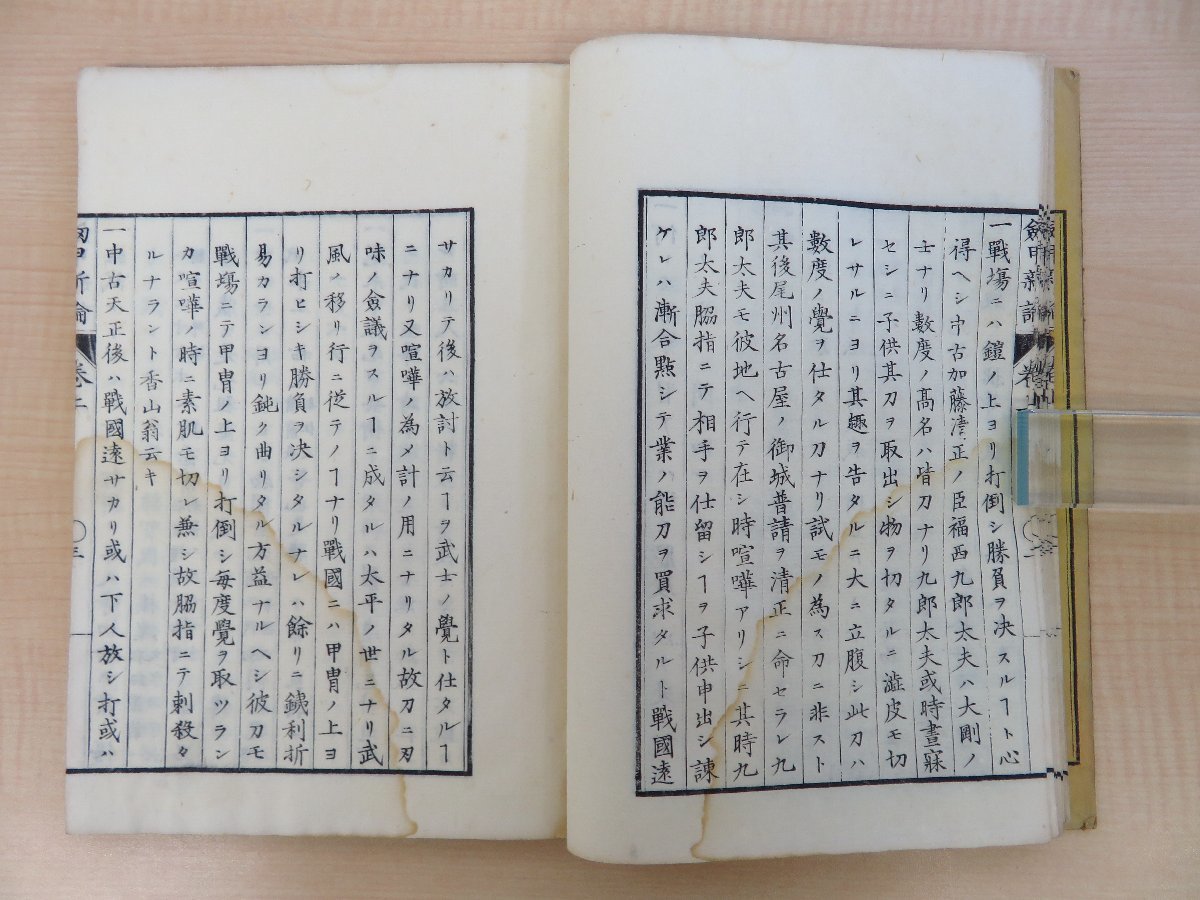 一戰塲ニハ鎧ノ上ヨリ打倒シ勝負ヲ决スルヿト心
得ヘシ中古加藤淸正ノ臣福西九郎太夫ハ大剛ノ
士ナリ數度ノ髙名ハ皆刀ナリ九郎太夫或時晝寐
セシニ子供其刀ヲ取出シ物ヲ切タルニ澁皮モ切
レサルニヨリ其趣ヲ告タルニ大ニ立腹シ此刀ハ
數度ノ覺ヲ仕タル刀ナリ試モノ為ス刀ニ非スト
其後尾州名古屋ノ御城普請ヲ清正ニ命セラレ九
郎太夫モ彼地ヘ行テ在シ時喧嘩アリシニ其時九
郎太夫脇指ニテ相手ヲ仕留シヿヲ子供申出シ諫
ケレハ漸合點シテ業ノ能刀ヲ買求タルト戰國遠
サカリテ後ハ放討ト云ヿヲ武士ノ覺ト仕タルヿ
ニナリ又喧嘩ノ為メ計ノ用ニナリタル故刀ニ刃
味ノ僉議ヲスルヿニ成タルハ太平ノ世ニナリ武
風ノ移リ行ニ従テノヿナリ戰國ニハ甲冑ノ上ヨ
リ打ヒシキ勝負ヲ决シタルナレハ餘リニ銕利折
易カランヨリ鈍ク曲リタル方益ナルヘシ彼刀モ
戰塲ニテ甲冑ノ上ヨリ打倒シ毎度覺ヲ取ツラン
カ喧嘩ノ時ニ素肌モ切レ兼シ故脇指ニテ刺殺タ
ルナラント香山翁云キ
一中古天正後ハ戰國遠サカリ或ハ下人放シ打或ハ
新論 卷二
〇三